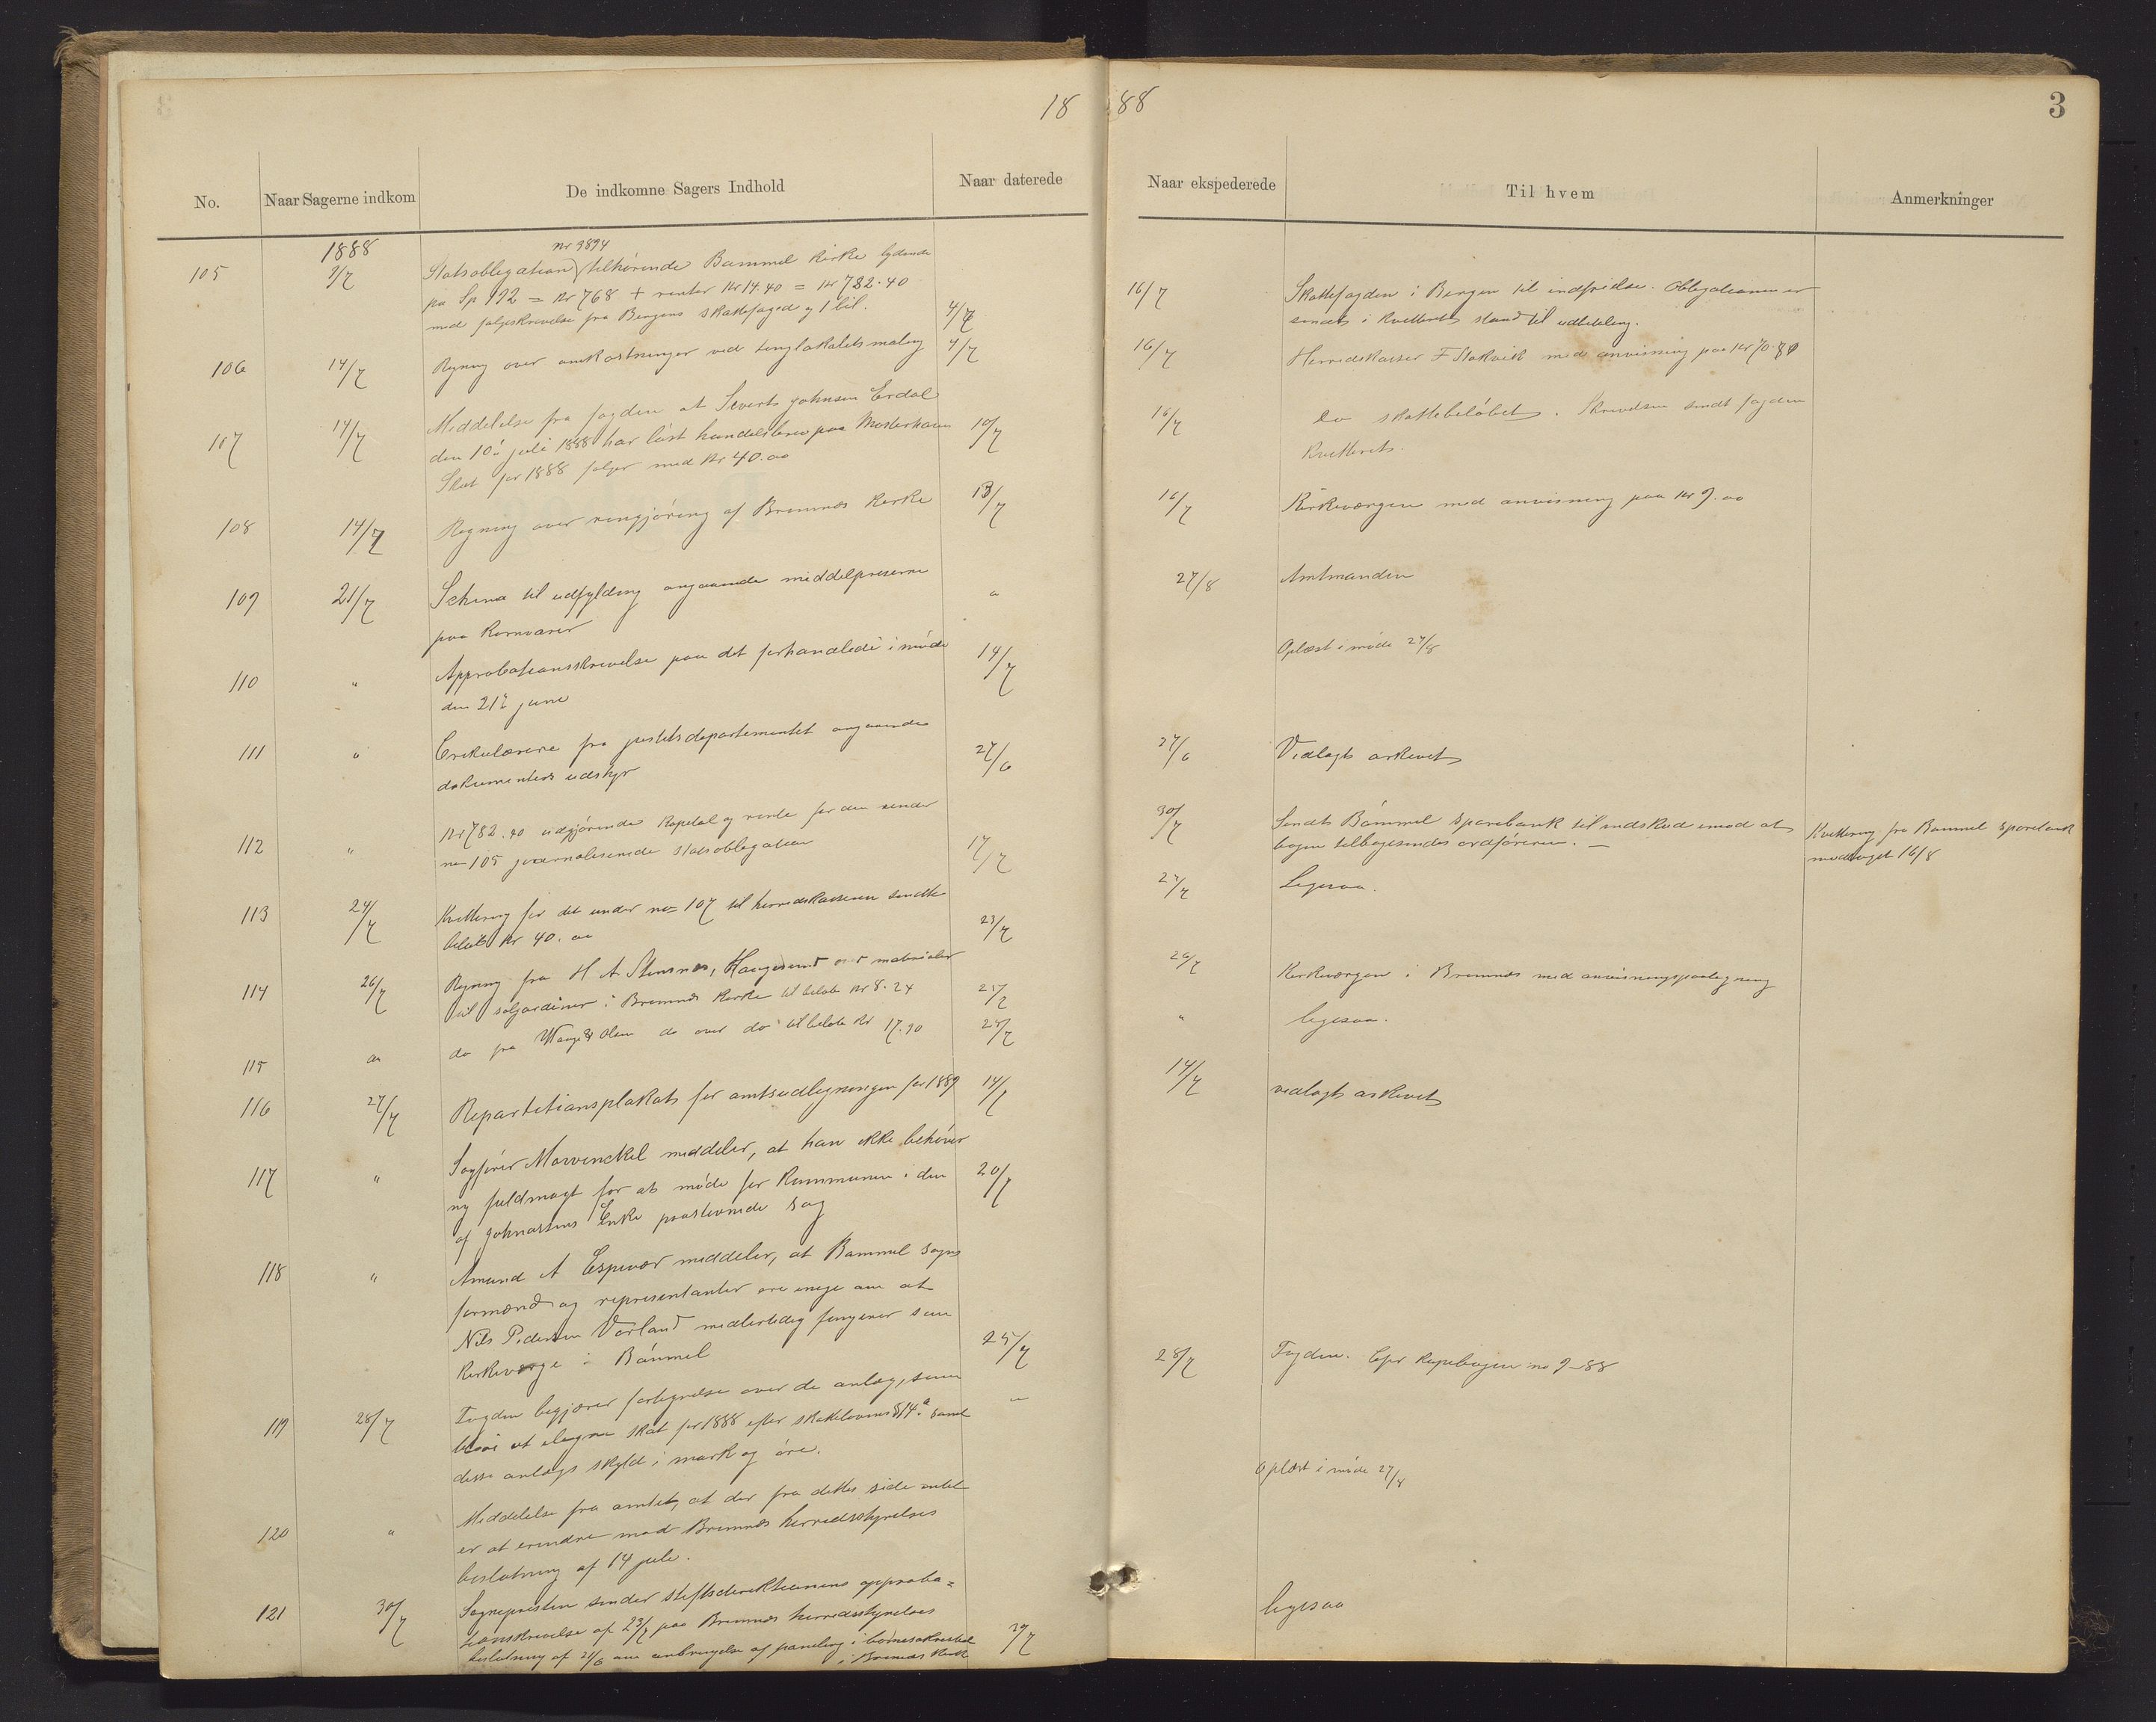 1888
3
No.
Naar Sagerne indkom
De indkomne Sagers Indhold
Naar daterede
Naar ekspederede
Til hvem
Anmerkninger
1888
nr 3894
105
9/7
Statsobligation tilhørende Bømmel kirke lydende
pa Sp 192 = Kr 768 + renter Kr 14.40 = Kr 782.40
med følgeskrivelse fra Bergens skattefoged og 1 bil.
4/7
16/7
Skattefogden i Bergen til indfrielse. Obligationen er
sendt i kvitteret stand til udbetaling.
106
14/7
Regning over omkostninger ved tinglokalets maling
4/7
16/7
Herredskasser F Stokvik med anvisning paa Kr 70.80
107
14/7
Meddelelse fra fogden at Siverts Johnsen Erdal
den 10de juli 1888 har løst handelsbrev paa Mosterhavn
Skat for 1888 følger med Kr 40.00
10/7
16/7
Do skattebeløbet. Skrivelsen sendt fogden
kvitteret.
108
14/7
Regning over rengjøring af Bremnes kirke
13/7
16/7
Kirkeværgen med anvisning paa Kr 9.00
109
21/7
Schema til udfylding angaaende middelpriserne
paa Kornvarer
"
27/8
Amtmanden
110
"
Approbationsskrivelse paa det forhandlede i møde
den 21de juni
14/7
Oplæst i møde 27/8
111
"
Cirkulærere fra justitsdepartementet angaaende
dokumenters udstyr
27/6
27/6
Vedlagt arkivet
112
"
Kr 782.40 udgjørende kapital og rente for den under
no 105 journaliserede statsobligation
17/7
30/7
Sendt Bømmel sparebank til indskud imod at
bogen tilbagesendes ordføreren. —
Kvittering fra Bømmel sparebank
modtaget 16/8
113
24/7
Kvittering for det under no 107 til herredskasseren sendte
beløb Kr 40.00
23/7
27/7
Ligesaa.
114
26/7
Regning fra H A Stensnes, Haugesund over materialer
til solgardiner i Bremnes kirke til beløb Kr 8.24
25/7
26/7
Kirkeværgen i Bremnes med anvisningspaategning
115
"
do fra Wang & Olsen do over do til beløb Kr 17.90
25/7
"
ligesaa.
116
27/7
Repartitionsplakat for amtsudligningen for 1889
14/7
14/7
vedlagt arkivet
117
"
Sagfører Mowinckel meddeler, at han ikke behøver
ny fuldmagt for at møde for Kommunen i den
af Johnassens Enke paastevnede sag
20/7
118
"
Amund A Espevær meddeler, at Bømmel sogns
formænd og representanter ere enige om at
Nils Pedersen Vorland midlertidig fungerer som
Kirkeværge i Bømmel
25/7
119
28/7
Fogden begjærer fortegnelse over de anlæg, som
blive at ilegne skat for 1888 efter skattelovens § 14.a samt
disse anlægs skyld i mark og øre.
"
28/7
Fogden. Cfr kopibogen no 9-88
120
"
Meddelelse fra amtet, at der fra dettes side intet
er at erindre mod Bremnes herredsstyrelses
beslutning af 14 juli.
Oplæst i møde 27/8
121
30/7
Sognepresten sender stiftsdirektionens approba=
tionsskrivelse af 23/7 paa Bremnes herredsstyrelses
beslutning af 21/6 om anbringelse af paneling i
i Bremnes kirke
30/7
ligesaa